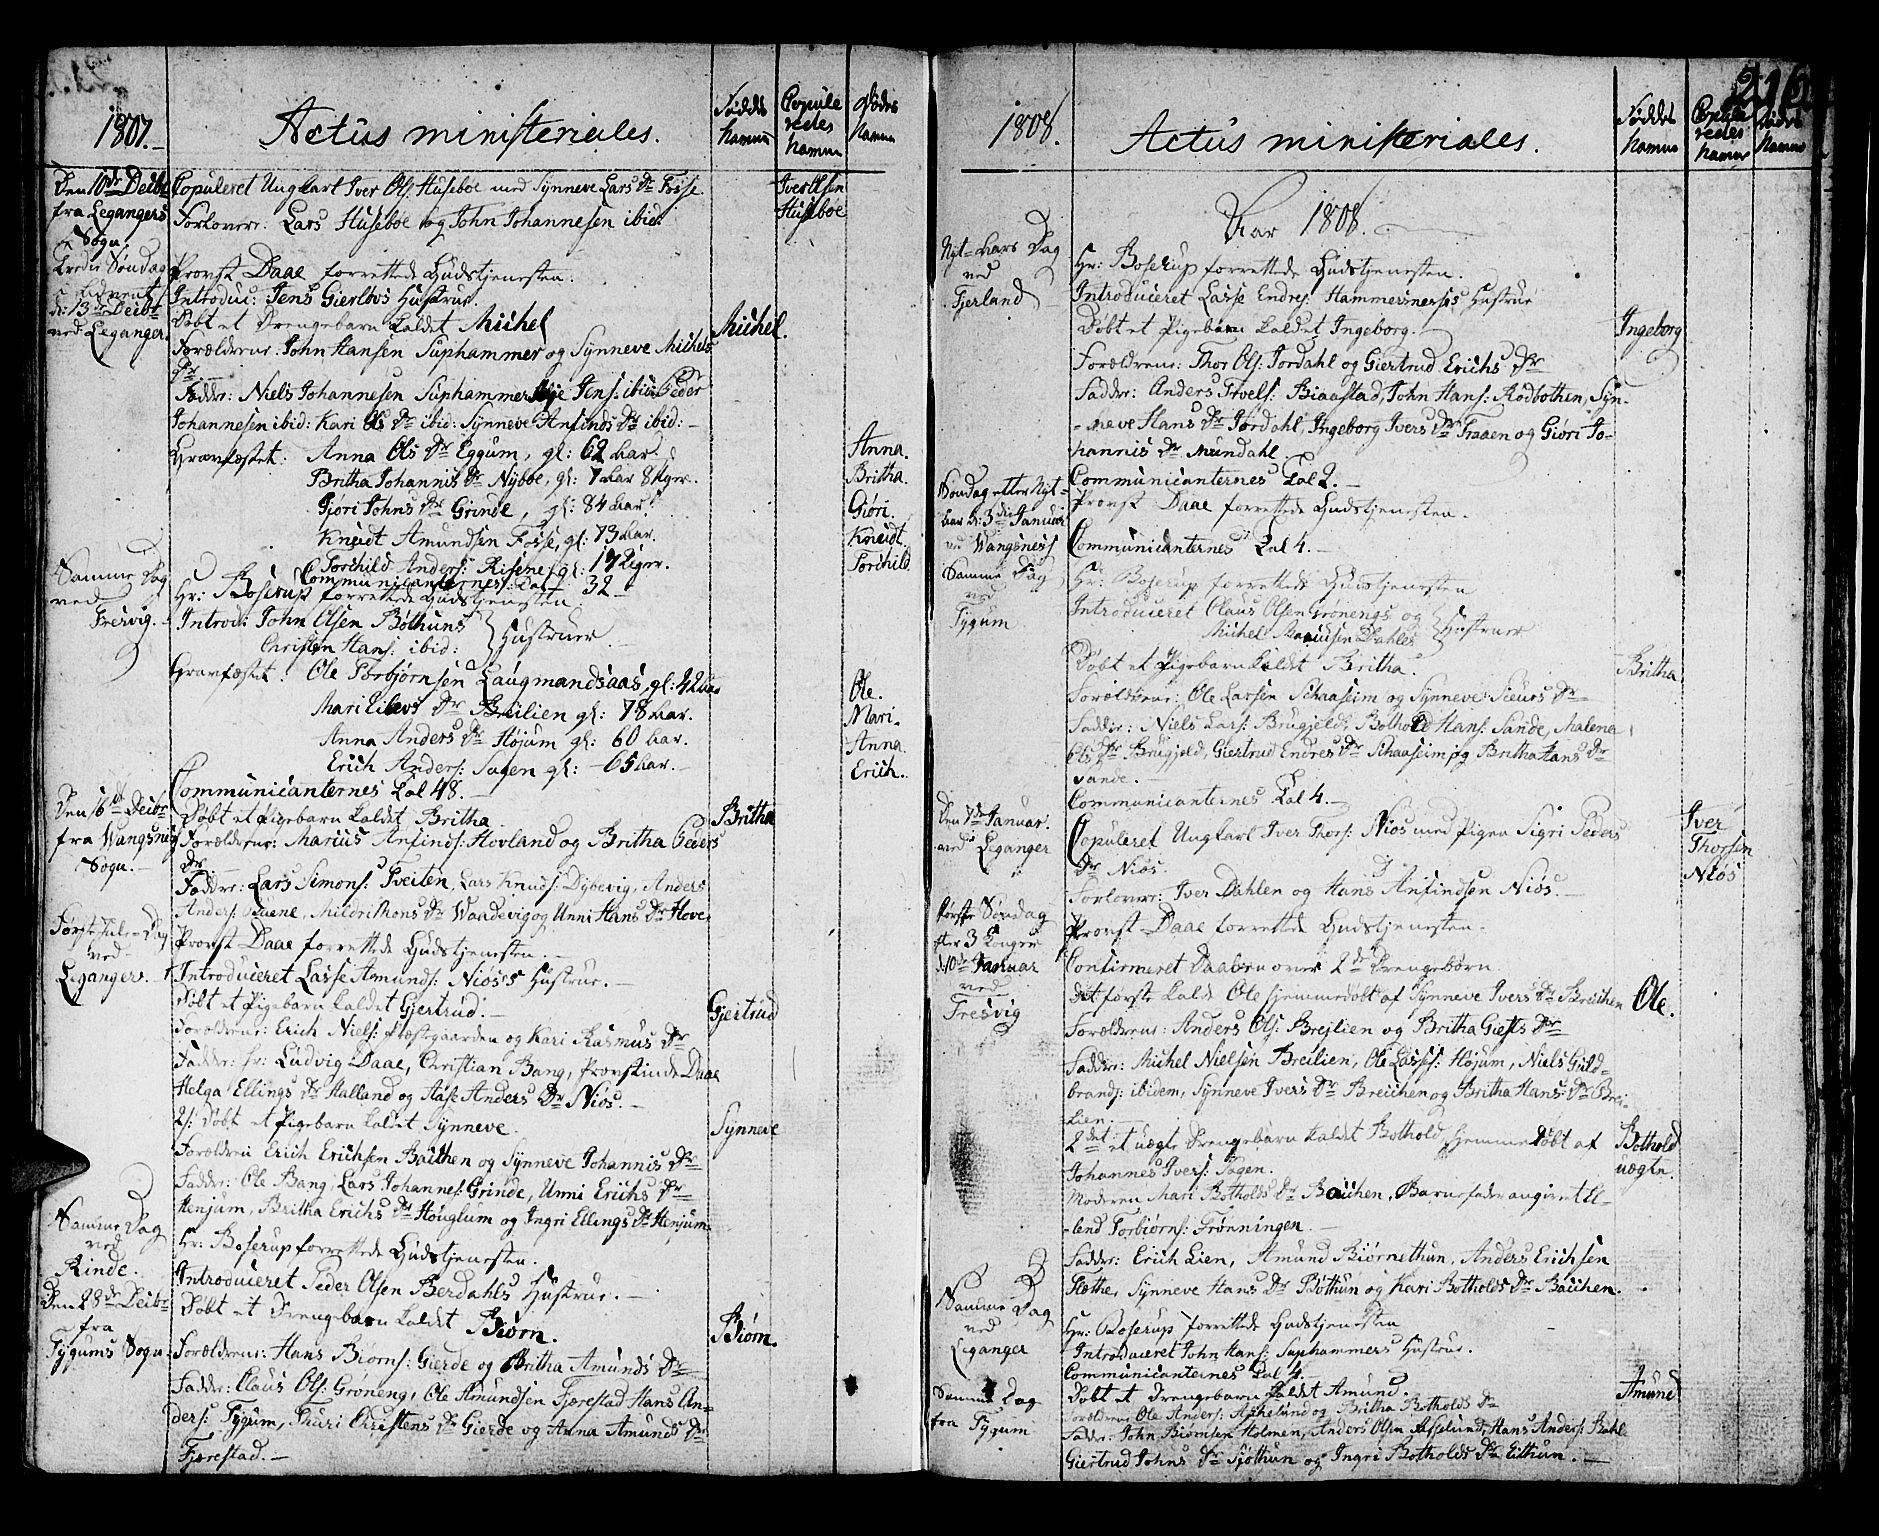 1807.
Actus ministeriales.
Føddes Namne
Copulerede Namne
Dødes Namne
Den 10de Decbr fra Leganger Sogn.
Copuleret Ungkarl Iver Ols: Huseboe med Synneve Lars Dr Fosse
Forlovere: Lars Huseboe og John Johannesen ibid:
Iver Olsen Huseboe
Tredie Søndag i Advent d: 13de Decbr ved Leganger.
Provst Daae forrettede Gudstjenesten.
Introduc: Jens Gierløvs Hustrue.
Døbt et Drengebarn kaldet Michel
Michel.
Forældrene: John Hansen Suphammer og Synneve Michels
Dr.
Fadder: Niels Johannesen Suphammer, Jens: ibid: Peder
Johannesen ibid: Kari Ols Dr ibid: Synneve Anfinds Dr ibid:
Gravfæstet: Anna Ols Dr Eggum, gl: 62 Aar.
Anna.
Britha Johannis Dr Nybøe, gl: 7 Aar 8 Uger.
Britha.
Gjøri Johns Dr Grinde, gl: 84 Aar.
Giøri.
Kneidt Amundsen Fosse, gl: 73 Aar.
Kneidt.
Torchild Anders: Risene, gl: 17 Uger.
Torchild
Communicanternes Tal 32
Samme Dag ved Fresvig.
Hr: Boserup forrettede Gudstjenesten
Introd: John Olsen Bøthuns
Christen Hans: ibid: } Hustruer
Gravfæstet: Ole Torbjørnsen Laugmandsaas, gl: 42 Aar
Ole.
Mari Dr Breilien gl: 78 Aar.
Mari.
Anna Anders Dr Højum gl: 60 Aar.
Anna.
Erich Anders: Sagen gl: 65 Aar.
Erich.
Communicanternes Tal 48.
Den 16de Decbr fra Wangsnes Sogn.
Døbt et Pigebarn kaldet Britha.
Britha
Forældrene: Marius Anfinds: Hovland og Britha Peders
Dr
Fadder: Lars Simons: Tveiten, Lars Knuds: Dybevig, Anders
Anders: Mons Dr Waadevig og Unni Hans Dr Hove
Første Jule-Dag ved Leganger.
Provst Daae forrettede Gudstjenesten.
Introduceret Lasse Amunds: Niøs's Hustrue.
Døbt et Pigebarn kaldet Gjertrud.
Gjertrud
Forældrene: Erich Niels: Præstgaarden og Kari Rasmus Dr
Fadder: Hr: Ludvig Daae, Christian Bang, Provstinde Daae
Helga Ellings Dr Halland og Aase Anders Dr Niøs.
2/: Døbt et Pigebarn kaldet Synneve.
Synneve
Forældren Erich Erichsen Bauchen og Synneve Johannis Dr
Fadder: Ole Bang, Lars Johannes: Grinde, Unni Erichs Dr
Henjum, Britha Erichs Dr Houglum og Ingri Ellings Dr Henjum.
Samme Dag ved Rinde.
Hr: Boserup forrettede Gudstjenesten.
Introduceret Peder Olsen Berdahls Hustrue.
Den 28de Decbr fra Tygums Sogn.
Døbt et Drengebarn kaldet Biørn.
Biørn.
Forældrene: Hans Biørns: Gierde og Britha Amunds Dr
Fadder: Claus Ols: Grøneng, Ole Amundsen Fjærestad, Hans An-
ders: Tygum, Thuri Christens Dr Gierde og Anna Amunds Dr
Fjærestad.
216
1808.
Actus ministeriales.
Føddes Namne
Copulerede Namne
Dødes Namne
Aar 1808.
Nyt-Aars Dag ved Fjerland
Hr: Boserup forrettede Gudstjenesten.
Introduceret Lasse Endres: Hammersnes's Hustrue
Døbt et Pigebarn kaldet Ingeborg.
Ingeborg
Forældrene: Thor Ols: Jordahl og Giertrud Erichs Dr
Fadder: Anders Troels: Biaastad, John Hans: Rødbothen, Syn-
-neve Hans Dr Jordahl, Ingeborg Ivers Dr Traaen og Giøri Jo-
hannis Dr Mundahl.
Communicanternes Tal 2.
Søndag efter Nyt-Aar d: 3die Januar ved Wangsness
Provst Daae forrettede Gudstjenesten.
Communicanternes Tal 4.
Samme Dag ved Tygum
Hr: Boserup forrettede Gudstjenesten
Introduceret Claus Olsen Grønengs og
Michel Mariusen Dahles } Hustruer
Døbt et Pigebarn kaldet Britha.
Britha
Forældrene: Ole Larsen Schaaseim og Synneve Sieurs Dr
Fadder: Niels Lars: Brugjeld, Bothold Hans: Sande, Malene
Ols Dr Brugjeld, Giertrud Endres Dr Schaaseim og Britha Hans Dr
Sande.
Communicanternes Tal 4.
Den 7de Januar. ved Leganger
Copuleret Ungkarl Iver Thors: Niøs med Pigen Sigri Peders
Dr Niøs.
Iver Thorsen Niøs
Forlover: Iver Dahlen og Hans Anfindsen Niøs.
Første Søndag efter 3 Konger d: 10de Januar ved Fresvig
Provst Daae forrettede Gudstjenesten.
Confirmeret Daaben over 2de Drengebørn.
det første kaldt Ole hjemmedøbt af Synneve Ivers Dr Breichen
Ole.
Forældrene: Anders Ols: Brejlien og Britha Giests Dr
Fadder: Michel Nielsen Breilien, Ole Lasses: Højum, Niels Guld-
brands: ibidem, Synneve Ivers Dr Breichen og Britha Hans: Dr Brei-
lien.
2det et uægte Drengebarn kaldet Bothold hjemmedøbt af
Bothold uægte.
Johannes Ivers: Sagen.
Moderen Mari Botholds Dr Bauchen, Barnefader angivet El-
-lend Torbiørns: Frønningen.
Fadder: Erich Lien, Amund Biørnethun, Anders Erichsen
Flæthe, Synneve Hans Dr Bøthun og Kari Botholds Dr Bauchen.
Samme Dag ved Leganger
Hr: Boserup forrettede Gudstjenesten
Introduceret John Hans: Suphammers Hustrue.
Communicanternes Tal 4.
Samme Dag fra Tygum
Døbt et Drengebarn kaldet Amund.
Amund
Forældrene Ole Anders: Aschelund og Britha Botholds Dr
Fadder: John Biørnsen Holmen, Anders Olsen Asselund, Hans Anders: Bahl
Giertrud Johns Dr Sjøthun og Ingri Botholds Dr Eithun.